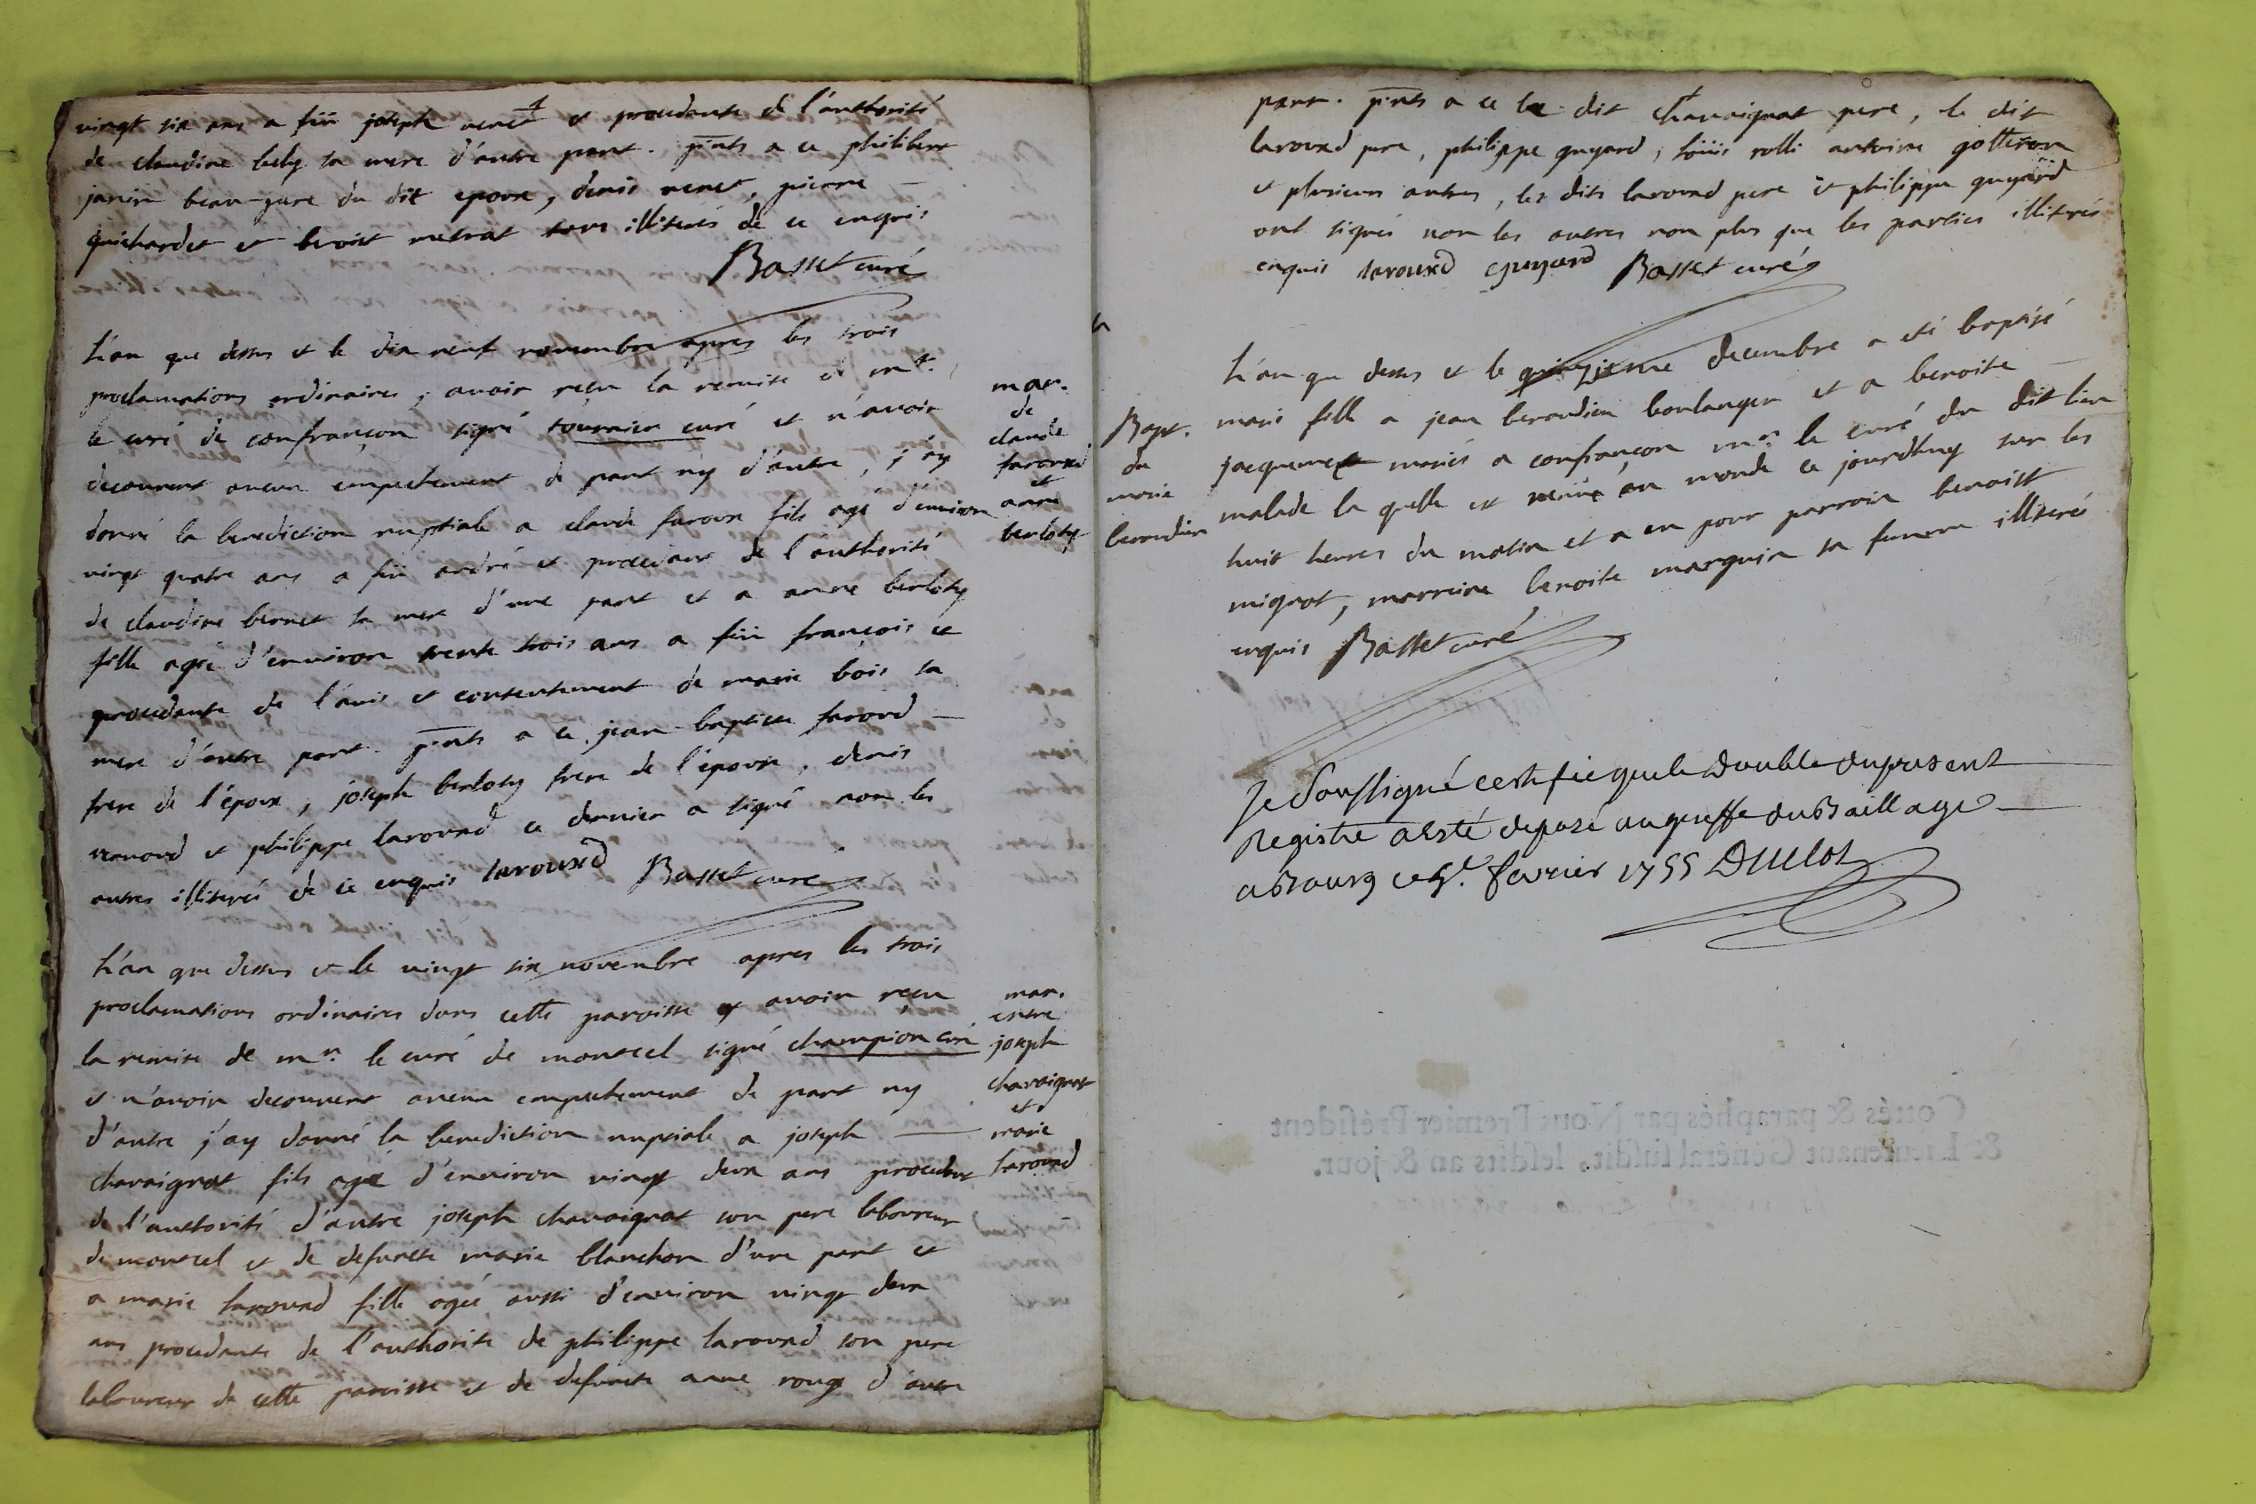 vingt six ans a feü joseph venet et procedante de l'authorité
de claudine bely sa mere d'autre part. pnts a ce philibert
janin beau-pere du dit epoux, denis venet, pierre
guichardet et benoit metrat tous illiterés de ce enquis
Basset curé
L'an que dessus et le dix neuf novembre apres les trois
proclamations ordinaires, avoir reçu la remise de mr.
le curé de confrançon signé tournier curé et n'avoir
decouvert aucun empechement de part ny d'autre, j'ay
donné la benediction nuptiale a claude faroux fils agé d'environ
vingt quatre ans a feü andré et procedant de l'authorité
de claudine bernet sa mere d'une part et a anne berloty
fille agée d'environ trente trois ans a feü françois et
procedante de l'avis et consentement de marie bois sa
mere d'autre part. pnts a ce jean-baptiste faroud
frere de l'epoux, joseph berloty frere de l'epouse, denis
renoud et philippe laround ce dernier a signé non les
autres illiterés de ce enquis laround Basset curé
mar.
de
claude
faroud
et
anne
berloty
L'an que dessus et le vingt six novembre apres les trois
proclamations ordinaires dans cette paroisse et avoir reçu
la remise de mr. le curé de montcel signé champion curé
et n'avoir decouvert aucun empechement de part ny
d'autre j'ay donné la benediction nuptiale a joseph
chavaignat fils agé d'environ vingt deux ans procedant
de l'authorité d'autre joseph chavaignat son pere laboureur
de montcel et de defuncte marie blanchon d'une part et
a marie laround fille agée aussi d'environ vingt deux
ans procedante de l'authorite de philippe laround son pere
laboureur de cette paroisse et de defuncte anne rouge d'autre
mar.
entre
joseph
chavaignat
et
marie
laround
part. pnts a ce le dit chavaignat pere, le dit
laround pere, philippe guyard, loüis rolli antoine gotteron
et plusieurs autres, les dits laround pere et philippe guyard
ont signés non les autres non plus que les parties illiterés
enquis laround guyard Basset curé
L'an que dessus et le quinzieme decembre a eté baptisé
marie fille a jean beraudier boulanger et a benoite
jacquemet mariés a confrançon mr. le curé du dit lieu
malade la quelle est venüe au monde ce jourdhuy sur les
huit heures du matin et a eu pour parrain benoist
mignot, marraine benoite marguin sa femme illiterés
enquis Basset curé
Bapt.
du
marie
beraudier
Je Soussigné certifie que le double du present
Registre a esté deposé au greffe du Baillage
a Bourg ce 5e. fevrier 1755 Duclot
Cottés & paraphés par Nous Premier Président
& Lieutenant Général susdit, lesdits an & jour.